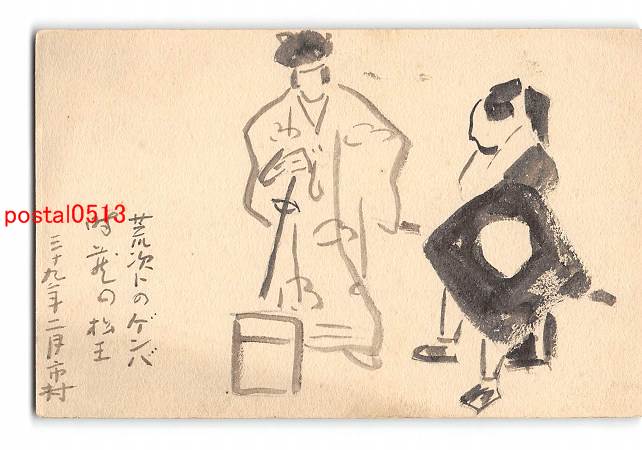 荒次トのゲンバ
時蔵の松王
三十九年二月市村
postal0513